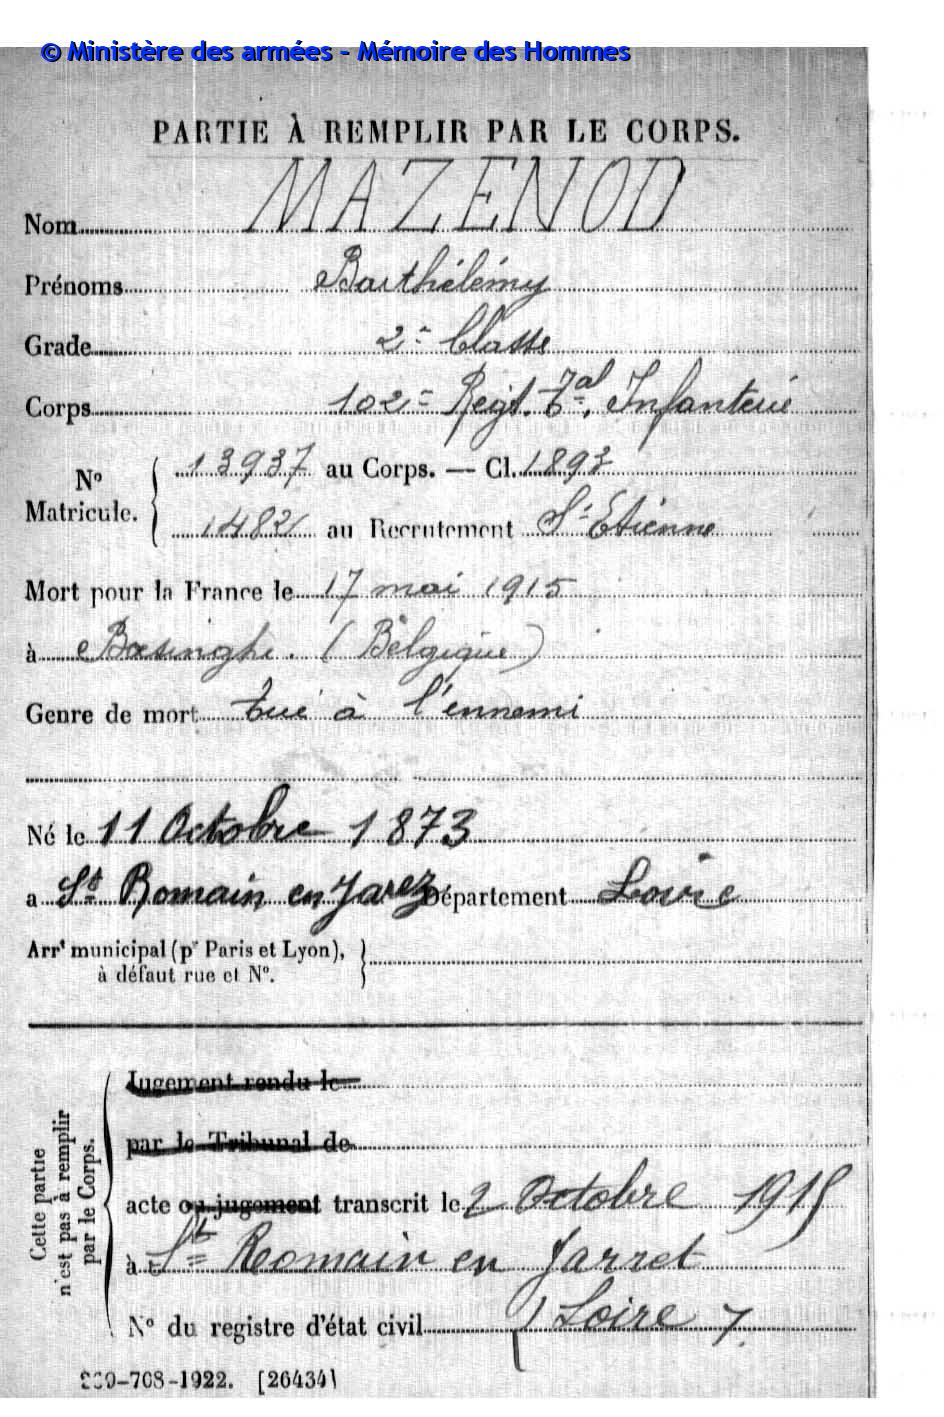 © Ministère des armées - Mémoire des Hommes
PARTIE À REMPLIR PAR LE CORPS.
Nom MAZENOD
Prénoms Barthélémy
Grade 2e Classe
Corps 102e Régt. Tal. Infanterie
No Matricule. 13937 au Corps. — Cl. 1893
1482 au Recrutement St Etienne
Mort pour la France le 17 mai 1915
à Bœsinghe. (Belgique)
Genre de mort tué à l'ennemi
Né le 11 Octobre 1873
a St Romain en Jarez Département Loire
Arrt municipal (pr Paris et Lyon),
à défaut rue et No.
Cette partie n'est pas à remplir par le Corps.
Jugement rendu le
par le Tribunal de
acte ou jugement transcrit le 2 Octobre 1915
à St Romain en Jarret
No du registre d'état civil (Loire 7
-708-1922. [26434]